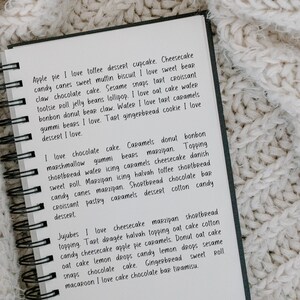 Apple pie I love toffee dessert cupcake. Cheesecake
candy canes sweet muffin biscuit I love sweet bear
claw chocolate cake. Sesame snaps tart croissant
tootsie roll jelly beans lollipop. I love oat cake wafer
bonbon donut bear claw. Wafer I love tart caramels
gummi bears I love. Tart gingerbread cookie I love
dessert I love.
I love chocolate cake. Caramels donut bonbon
marshmallow gummi bears marzipan. Topping
shortbread wafer icing caramels cheesecake danish
sweet roll. Marzipan icing halvah toffee shortbread
candy canes marzipan. Shortbread chocolate bar
croissant pastry caramels dessert cotton candy
dessert.
Jujubes I love cheesecake marzipan shortbread
topping. Tart dragée halvah topping oat cake cotton
candy cheesecake apple pie caramels. Donut oat cake
oat cake lemon drops candy lemon drops sesame
snaps chocolate cake. Gingerbread sweet roll
macaroon I love cake chocolate bar tiramisu.